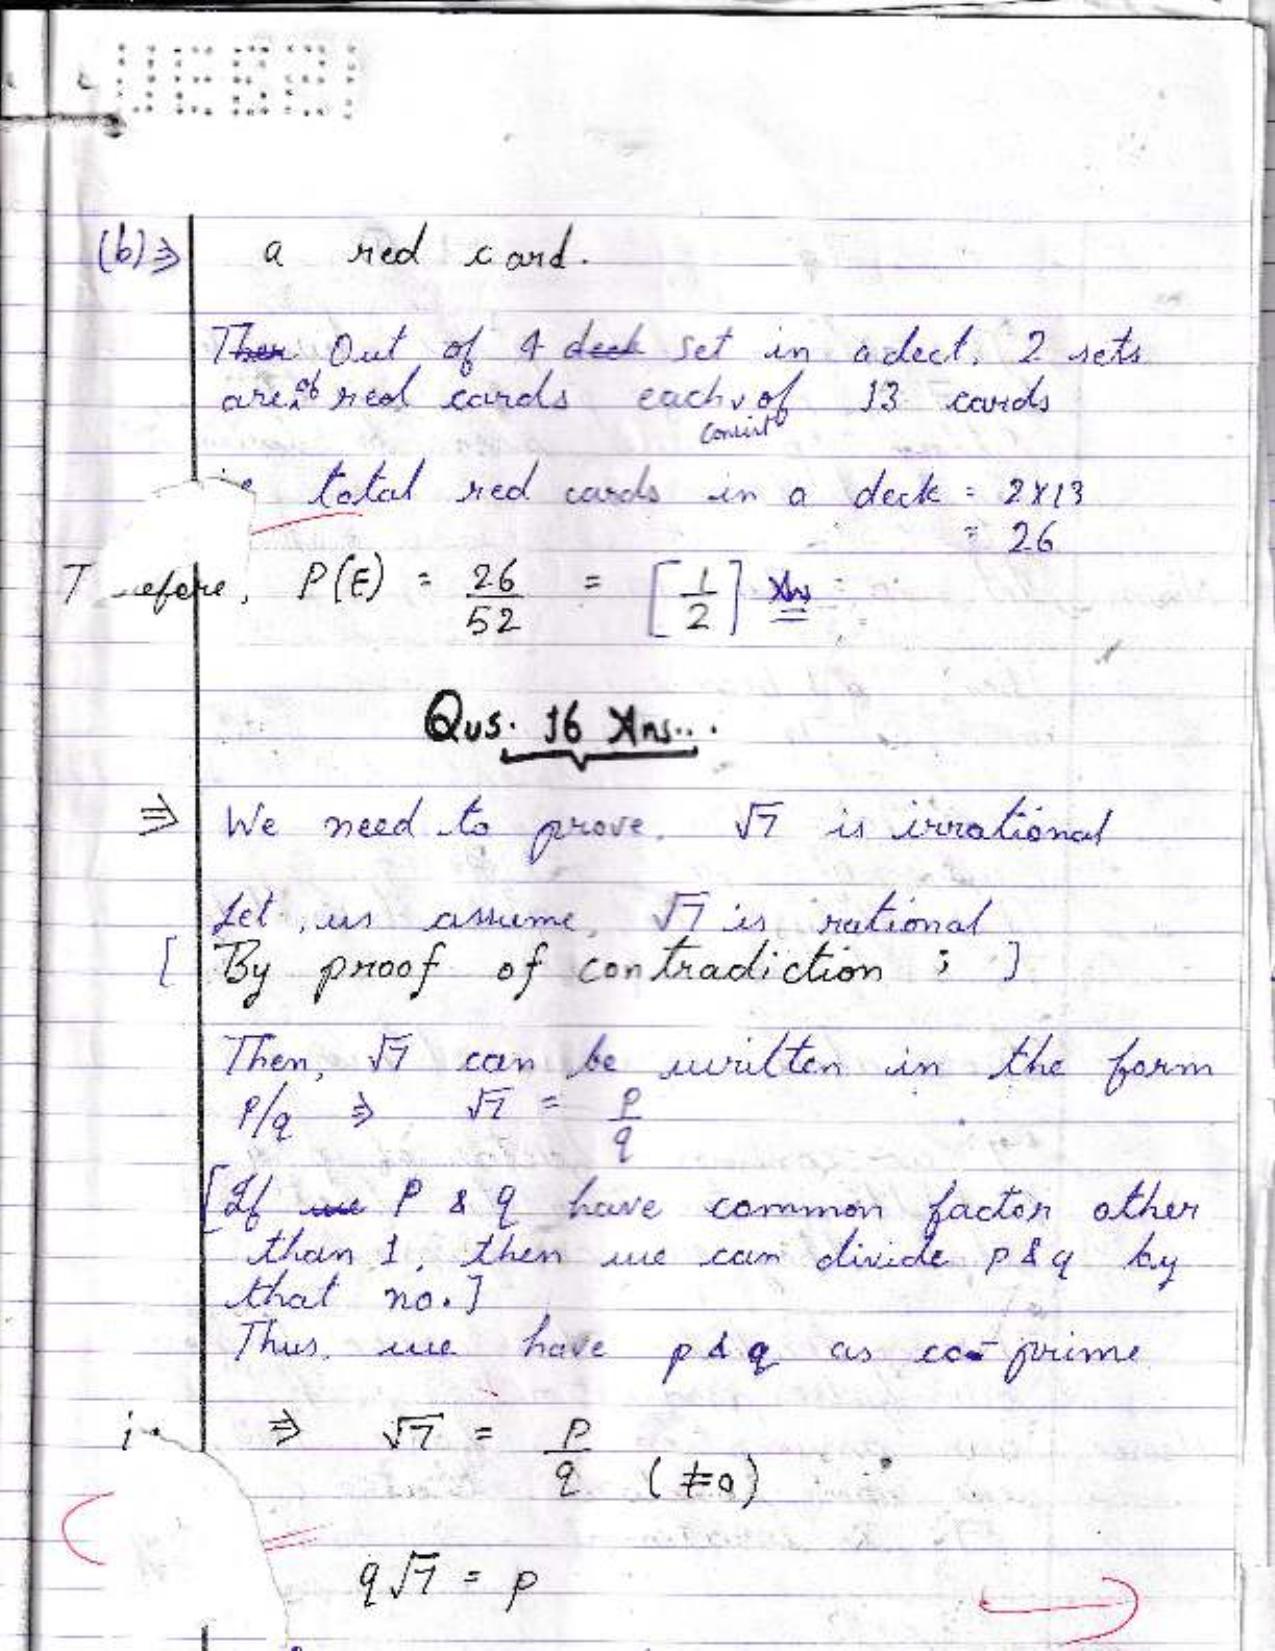 (b)⇒ a red card.
Ther Out of 4 deck set in a dect. 2 sets
are of red cards each consist of 13 cards
total red cards in a deck = 2x13
= 26
refore, P(E) = 26/52 = [1/2] Ans
Qus. 16 Ans...
⇒ We need to prove. √7 is irrational
Let, us assume, √7 is rational
[ By proof of contradiction ; ]
Then, √7 can be written in the form
P/q ⇒ √7 = P/q
[If we P & q have common factor other
than 1, then we can divide p & q by
that no.]
Thus, we have p & q as co-prime
⇒ √7 = P/q (≠0)
q√7 = p